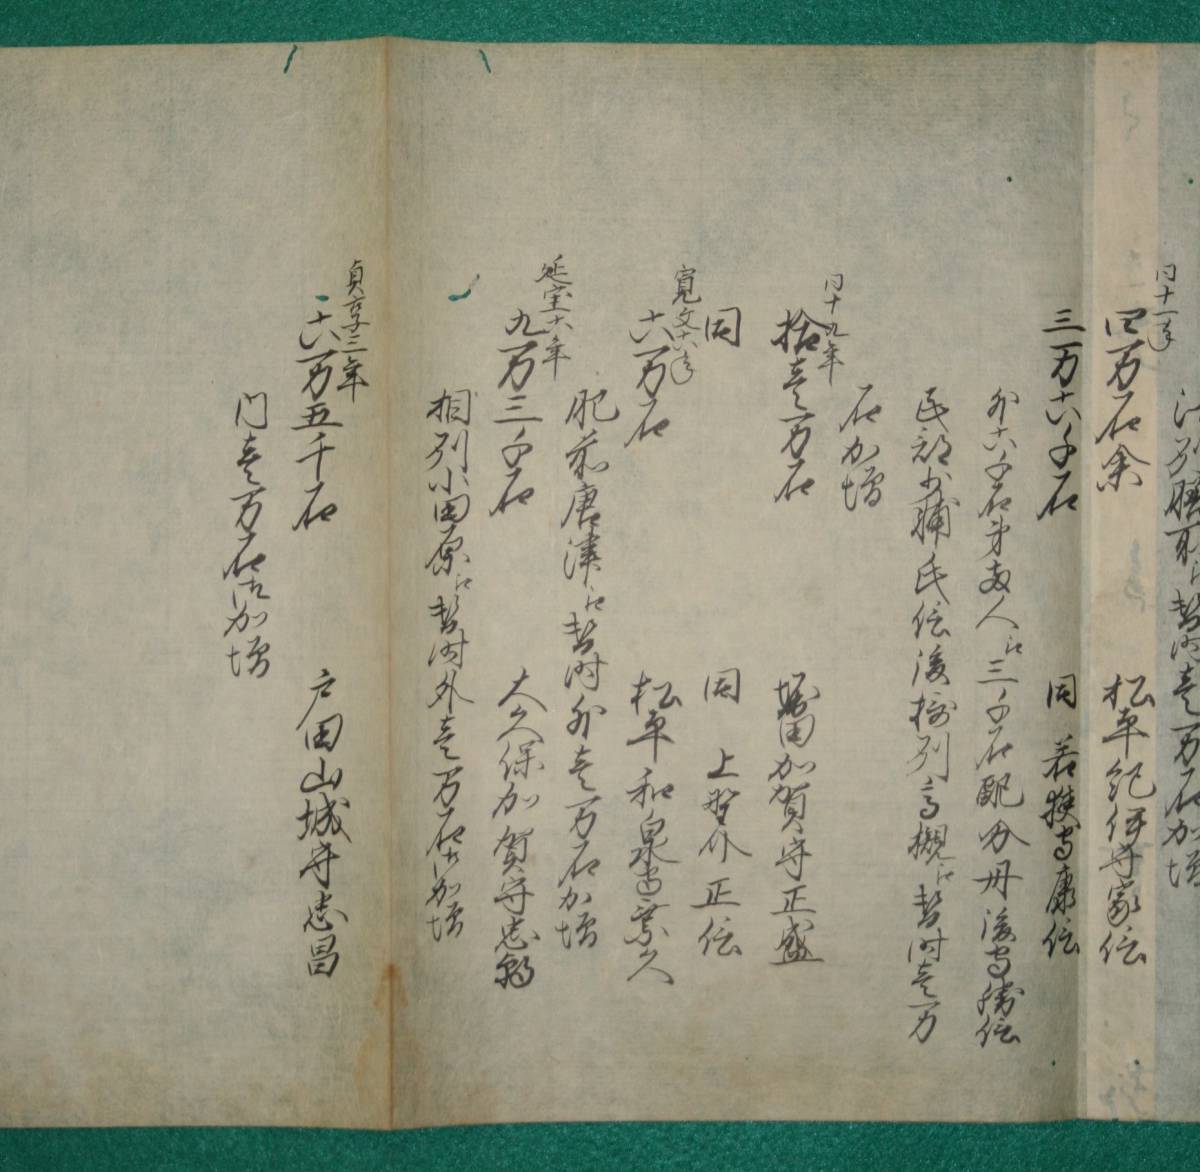 江州膳所江替時壱万石加増
同十一年
四万石余 松平紀伊守家信
三万六千石 同 若狭守康信
外六千石弟両人江三千石配分丹後守勝信
民部少輔氏信後摂州高槻江替時壱万
石加増
同十九年
拾壱万石 堀田加賀守正盛
同 同 上野介正信
寛文六年
六万石 松平和泉守乗久
肥前唐津江替時外壱万石加増
延宝六年
九万三千石 大久保加賀守忠朝
相州小田原江替時外壱万石御加増
貞享三年
六万五千石 戸田山城守忠昌
内壱万石御加増